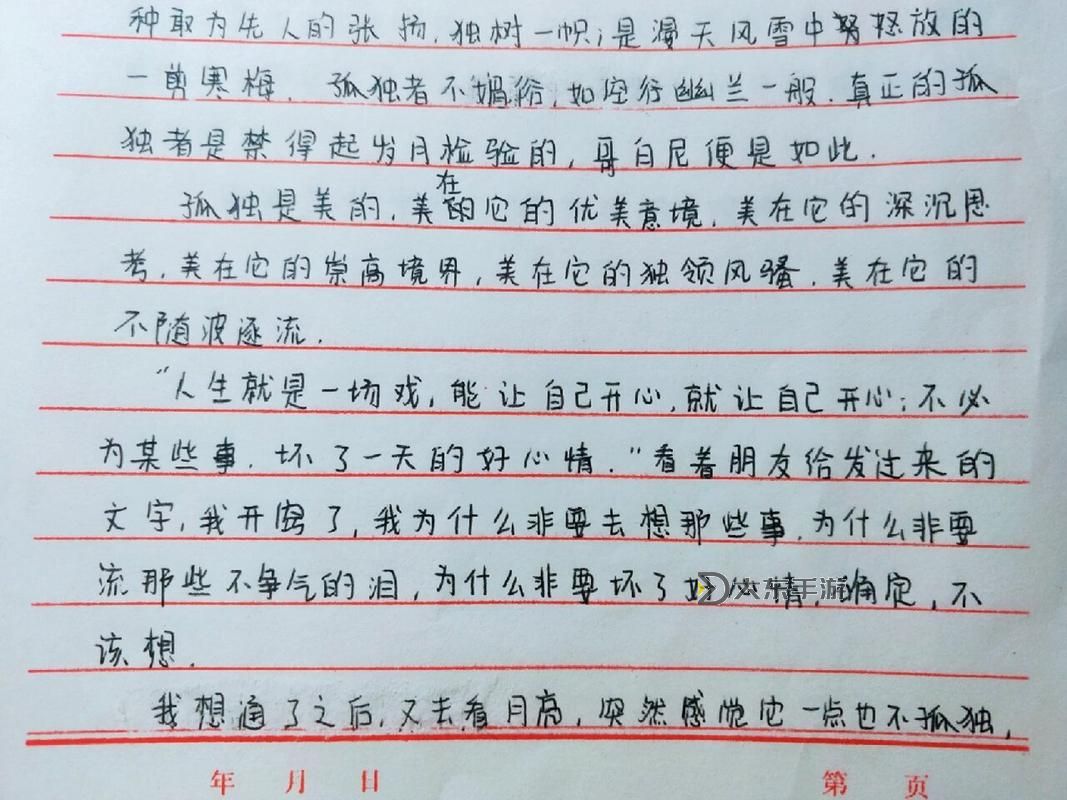 种敢为先人的张扬，独树一帜；是漫天风雪中努怒放的
一剪寒梅．孤独者不媚俗，如空谷幽兰一般．真正的孤
独者是禁得起岁月检验的，哥白尼便是如此．
孤独是美的，美在它的优美意境，美在它的深沉思
考，美在它的崇高境界，美在它的独领风骚，美在它的
不随波逐流．
“人生就是一场戏，能让自己开心，就让自己开心；不必
为某些事．坏了一天的好心情．”看着朋友给发过来的
文字，我开窍了，我为什么非要去想那些事，为什么非要
流那些不争气的泪，为什么非要坏了好心情，确定，不
该想．
我想通了之后，又去看月亮，突然感觉它一点也不孤独，
年 月 日 第 页
大东手游